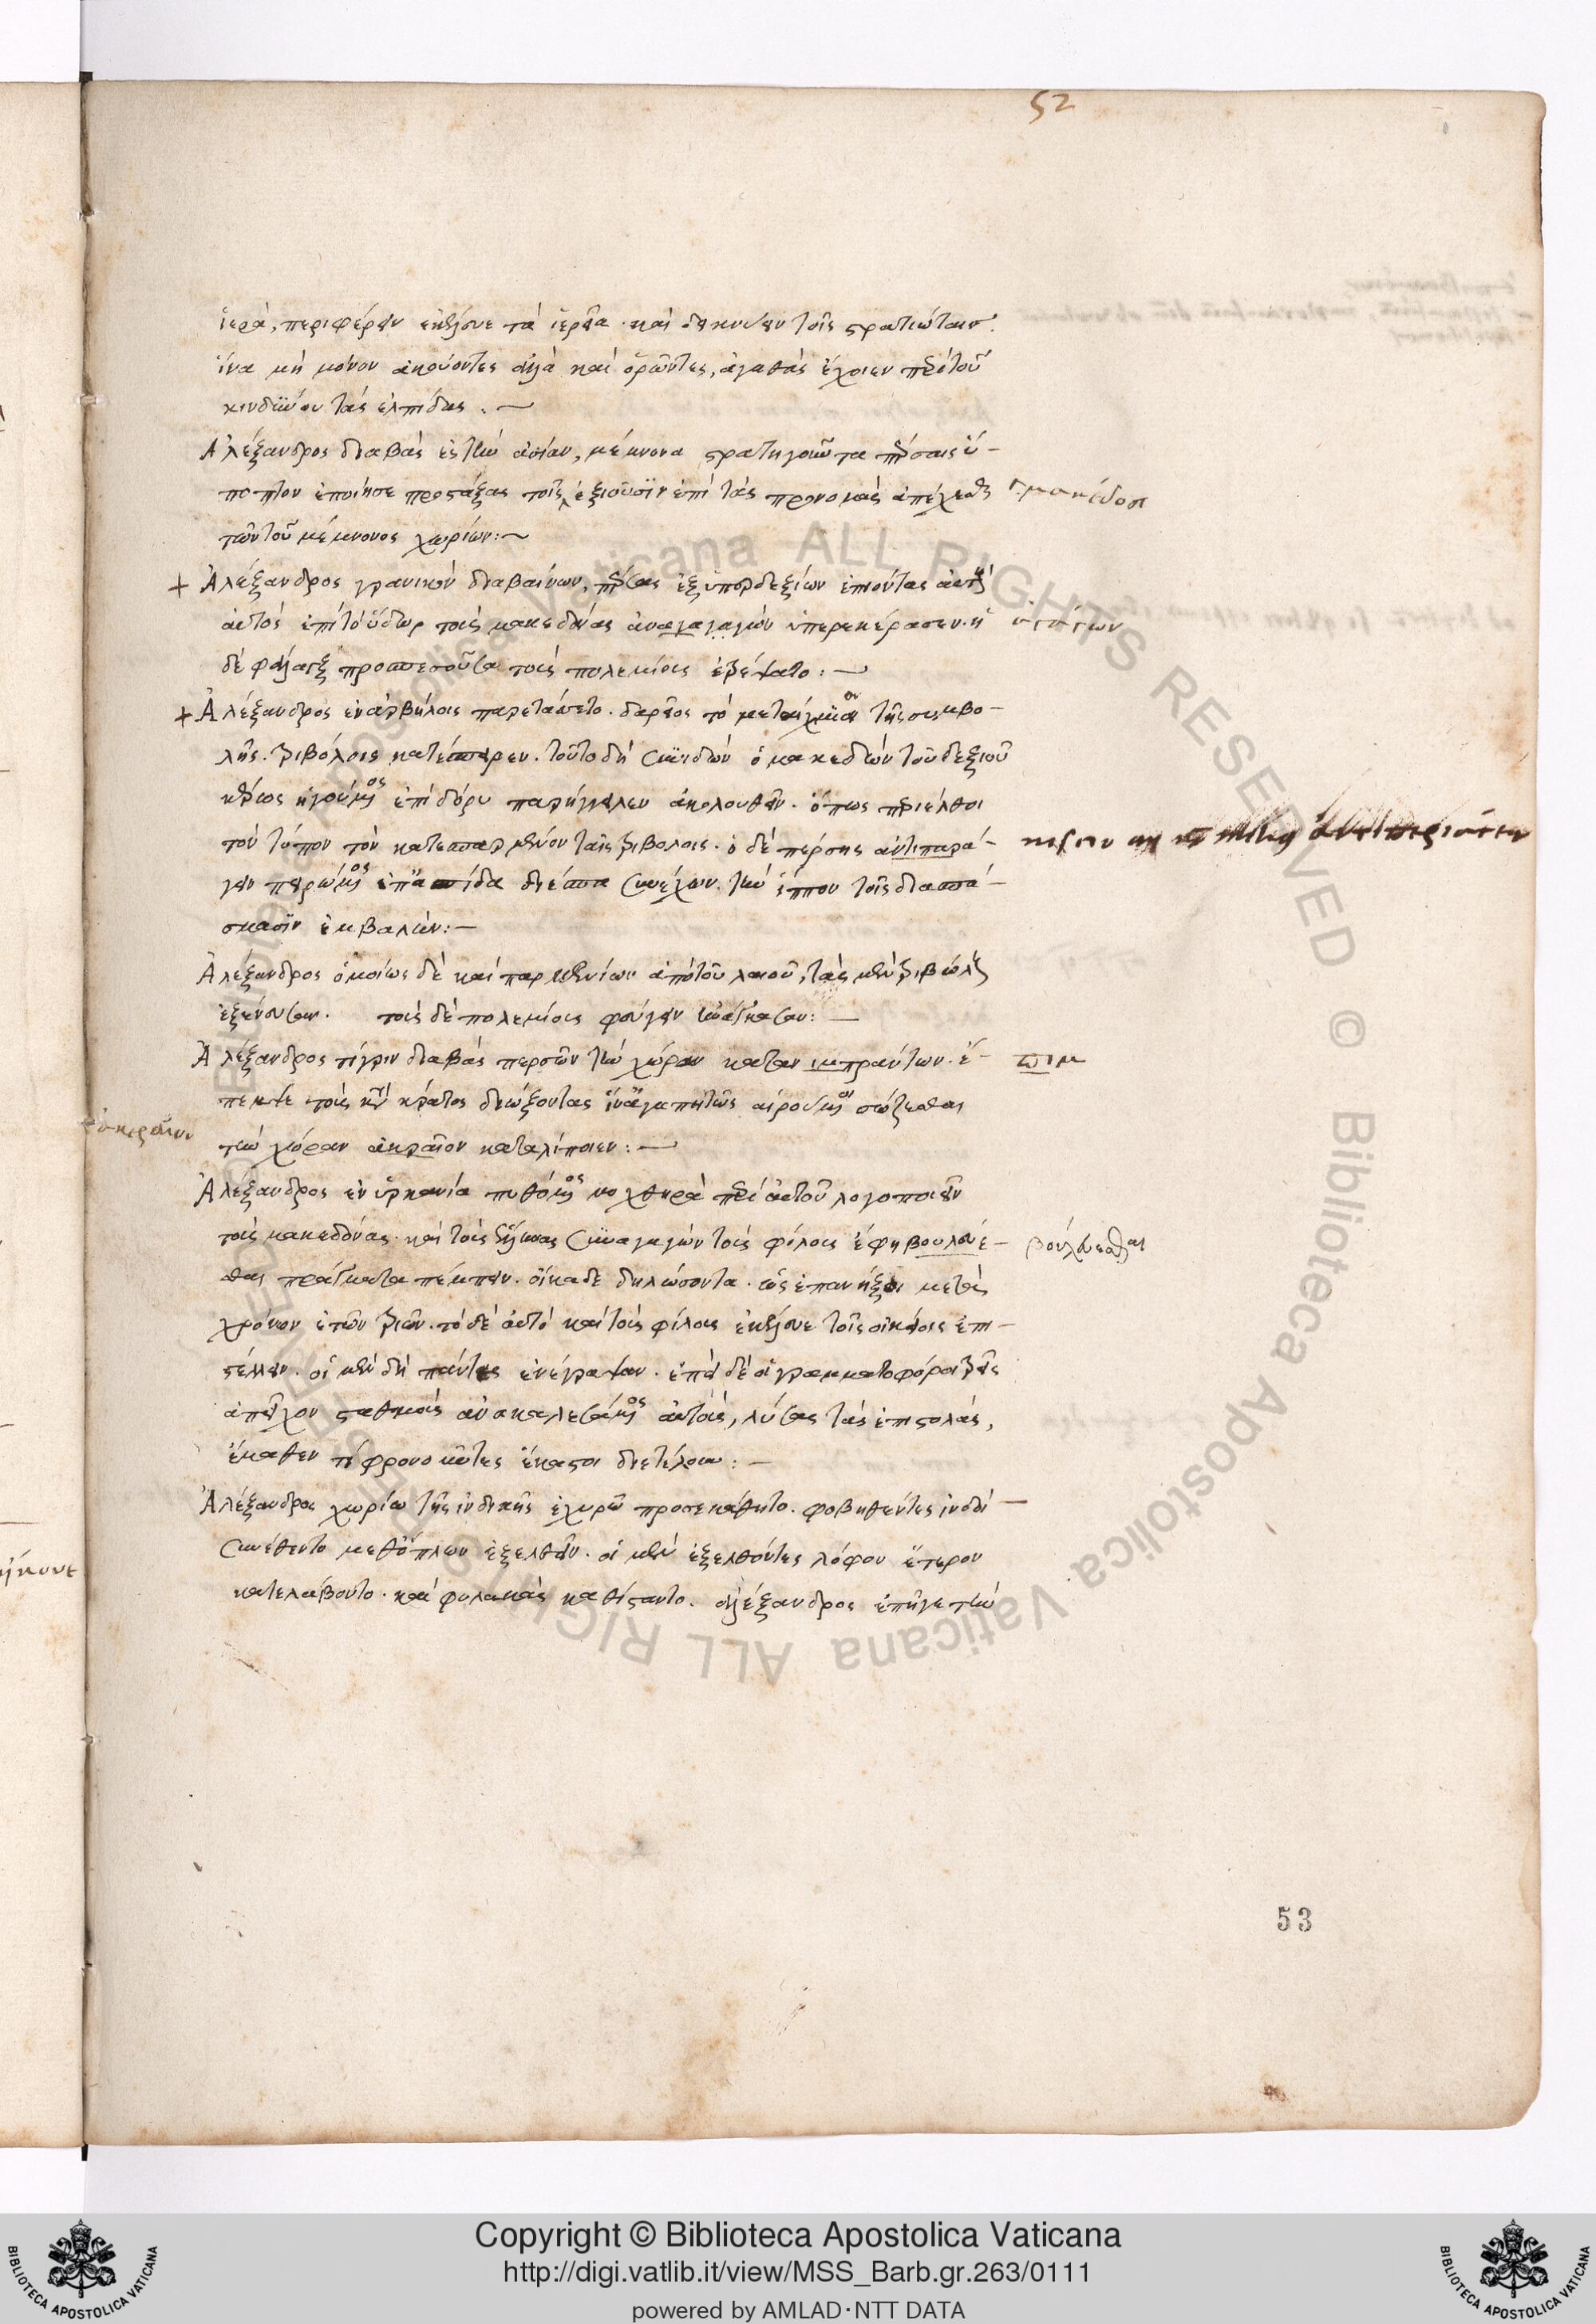 52
ἱερὰ, περιφέρειν ἐκέλευε τὰ ἱερεῖα. καὶ δεικνύειν τοῖς στρατιώταις.
ἵνα μὴ μόνον ἀκούοντες ἀλλὰ καὶ ὁρῶντες, ἀγαθὰς ἔχοιεν περὶ τοῦ
κινδύνου τὰς ἐλπίδας. —
Ἀλέξανδρος διαβὰς ἐς τὴν ἀσίαν, μέμνονα στρατηγοῦντα πέρσαις ὕ-
ποπτον ἐποίησε προστάξας τοῖς ἐξιοῦσϊν ἐπὶ τὰς προνομὰς ἀπέχεσθαι
μακεδόσι
τῶν τοῦ μέμνονος χωρίων: ~
+ Ἀλέξανδρος γρανικὸν διαβαίνων, πέρσας ἐξ ὑπερδεξίων ἐπιόντας αὐτὸς
αὐτὸς ἐπὶ τὸ ὕδωρ τοὺς μακεδόνας ἀναγαγαγὼν ὑπερεκέρασεν. ἡ
δὲ φάλαγξ προσπεσοῦσα τοὺς πολεμίους ἐτρέψατο: —
+ Ἀλέξανδρος ἐν ἀρβήλοις παρετάσσετο. δαρεῖος τὸ μεταίχμιον τῆς συμβο-
λῆς. τριβόλοις κατέσπειρεν. τοῦτο δὴ συνιδὼν ὁ μακεδὼν τοῦ δεξιοῦ
κέρως ἡγούμενος ἐπὶ δόρυ παρήγγειλεν ἀκολουθεῖν. ὅπως περιέλθοι
τὸν τόπον τὸν κατεσπαρμένον ταῖς τριβόλοις. ὁ δὲ πέρσης ἀντιπαρά-
γειν πειρώμενος ἐπ᾽ ἀσπίδα διέσπα συνέχων. τὴν ἵππον τοῖς διασπά-
σμασϊν ἐμβαλών: —
Ἀλέξανδρος ὁμοίως δὲ καὶ παρμενίων ἀπὸ τοῦ λαιοῦ, τὰς μὲν τριβόλους
ἐξένευσαν. τοὺς δὲ πολεμίους φεύγειν ἠνάγκασαν: —
Ἀλέξανδρος τίγριν διαβὰς περσῶν τὴν χώραν κατανιμπραύντων. ἔ-
πιμ
πεμψε τοὺς κατὰ κράτος διώξοντας ἵνα ἀγαπητῶς αἱρούμενοι σώζεσθαι
τὴν χώραν ἀκραῖον καταλίποιεν: —
Ἀλέξανδρος ἐν ὑρκανία πυθόμενος μοχθηρὰ περὶ αὐτοῦ λογοποιεῖν
τοὺς μακεδόνας. καὶ τοὺς ἕλληνας συναγαγὼν τοὺς φίλους ἔφη βουλευέ-
βούλεσθαι
σθαι γράμματα πέμπειν. οἴκαδε δηλώσοντα. ὡς ἐπανήξει μετὰ
χρόνον ἐτῶν τριῶν. τὸ δὲ αὐτὸ καὶ τοὺς φίλους ἐκέλευε τοῖς οἰκείοις ἐπι-
στέλλειν. οἱ μὲν δὴ πάντες ἐνέγραψαν. ἐπεὶ δὲ οἱ γραμματοφόροι τρεῖς
ἀπεῖχον σταθμοὺς ἀνακαλεσάμενος αὐτοὺς, λύσας τὰς ἐπιστολάς,
ἔμαθεν τί φρονοῦντες ἕκαστοι διετέλουν: —
Ἀλέξανδρος χωρίω τῆς ἰνδικῆς ἐχυρῶ προσεκάθητο. φοβηθέντες ἰνδοὶ —
συνέθεντο μεθ᾽ ὅπλων ἐξελθεῖν. οἱ μὲν ἐξελθόντες λόφον ἕτερον
κατελάβοντο. καὶ φυλακὰς καθίσταντο. ἀλέξανδρος ἐπῆγε τὴν
53
Copyright © Biblioteca Apostolica Vaticana
http://digi.vatlib.it/view/MSS_Barb.gr.263/0111
powered by AMLAD·NTT DATA